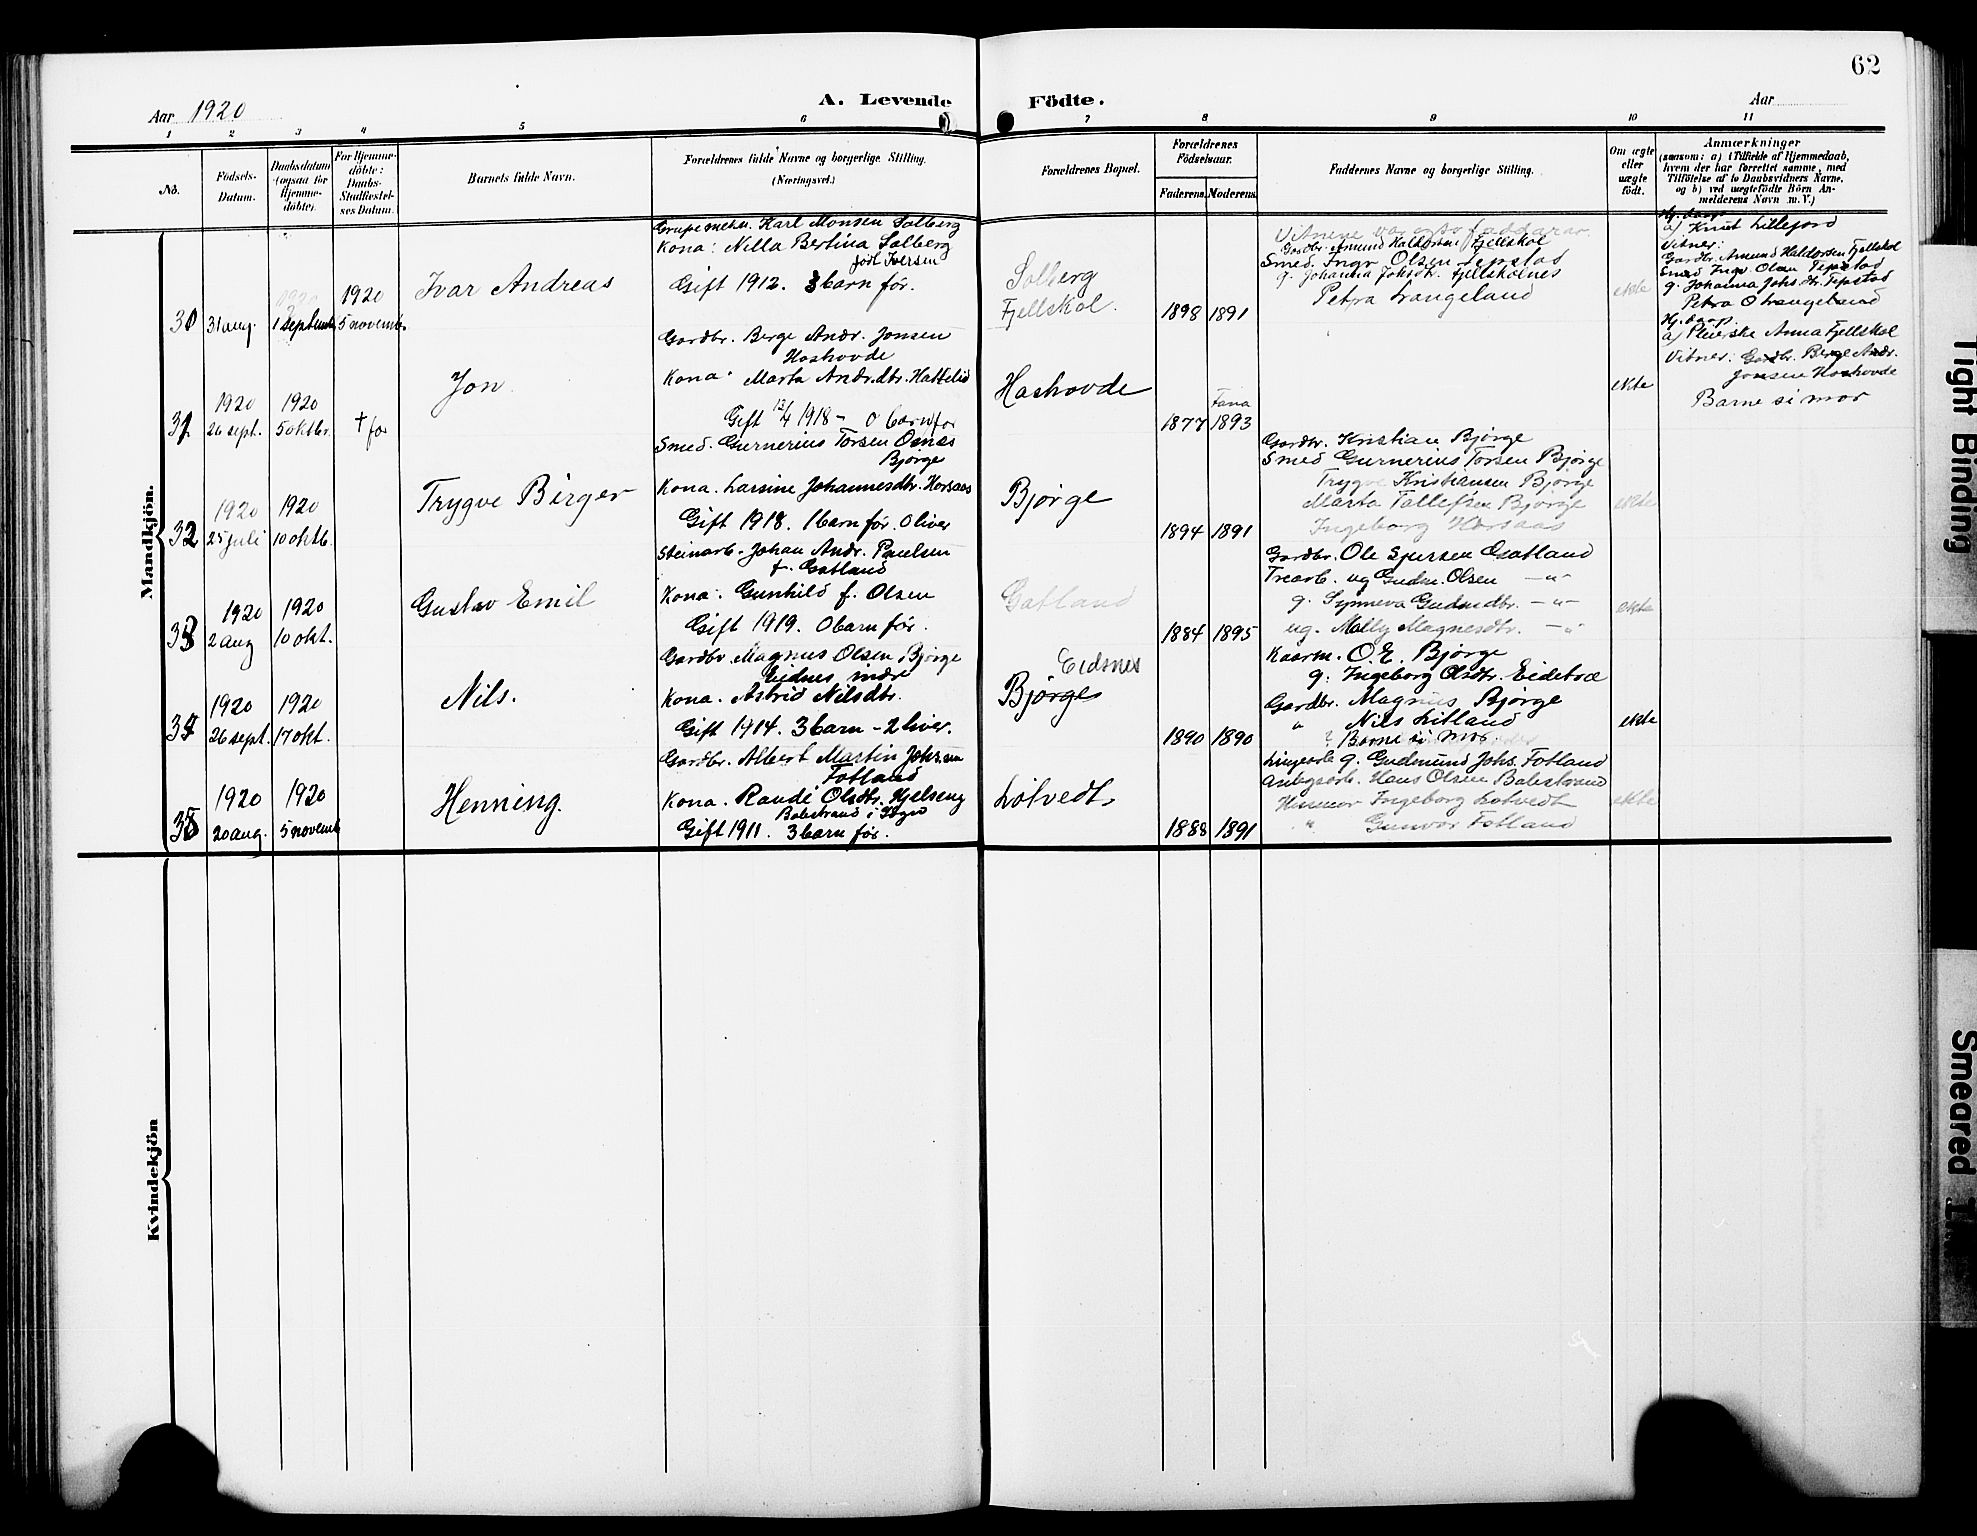 62
Aar 1920
A. Levende Födte.
Aar
1 2 3 4 5 6 7 8 9 10 11
No.
Födsels-
Datum.
Daabsdatum
(ogsaa for
Hjemme-
döbte).
For Hjemme-
döbte:
Daabs-
Stadfæstel-
ses Datum.
Barnets fulde Navn.
Forældrenes fulde Navne og borgerlige Stilling.
(Næringsvei.)
Forældrenes Bopæl.
Forældrenes
Födselsaar.
Faderens. Moderens.
Faddernes Navne og borgerlige Stilling.
Om ægte
eller
uægte
födt.
Anmærkninger
(saasom: a) i Tilfælde af Hjemmedaab,
hvem der har forrettet samme, med
Tilföielse af to Daabsvidners Navne,
og b) ved uægtefödte Börn An-
melderens Navn m. V.)
Mandkjön.
30
31 aug.
1920
1 septemb
1920
5 novemb.
Ivar Andreas
Grupemeten. Karl Monsen Solberg
Kona: Nilla Bertina Solberg
født Iversen
Gift 1912. 3 barn før.
Solberg
Fjellskol.
1898 1891
Vitnene var ogso faddarar.
Gardbr. Amund Haldorsen Fjellskol
Smed. Ingv Olsen Tepstad
g. Johanna Johsdtr. Fjellskolnes
Petra Langeland
ekte
Hj. daap
a) Knut Lillefjord
Vitner:
Gardbr. Amund Haldorsen Fjellskol
Smed Ingv. Olsen Tepstad
g. Johanna Johs. dtr. Tepstad
Petra O Langeland
31
1920
26 sept.
1920
5 oktbr.
† før
Jon
Gardbr. Berge Andr. Jonsen
Hashovde
Kona: Marta Andr.dtr. Hattelid
Gift 13/4 1918 - 0 barn før
Hashovde
1877
Fana
1893
ekte
Hj. daap.
a) Pleierske Anna Fjellskol
Vitner: Gardbr. Berge Andr.
Jonsen Hashovde
Barne si mor
32
1920
25 juli
1920
10 oktb.
Trygve Birger
Smed. Gurnerius Torsen Osnes
Bjørge
Kona. Larsine Johannesdtr. Horsaas
Gift 1918. 1 barn før. 0 liver
Bjørge
1894 1891
Gardbr. Kristian Bjørge
Smed Gurnerius Torsen Bjørge
Trygve Kristiansen Bjørge
Marta Tollefsen Bjørge
Ingeborg Horsaas
ekte
33
1920
2 aug
1920
10 okt.
Gustav Emil
Steinarb. Johan Andr. Paulsen
f. Gatland
Kona: Gunhild f. Olsen
Gift 1919. 0 barn før.
Gatland
1884 1895
Gardbr. Ole Sjursen Gatland
Trearb. ug Gudm. Olsen —"—
g. Synneva Gudmdtr. —"—
ug. Molly Magnesdtr. —"
ekte
34
1920
26 sept.
1920
17 okt.
Nils.
Gardbr. Magnus Olsen Bjørge
Eidnes
Kona. Astrid Nilsdtr.
Gift 1914. 3 barn - 2 liver.
Eidsnes
Bjørge
1890 1890
Kaarm. O. E. Bjørge
g. Ingeborg Olsdtr. Eidetræ
Gardbr. Magnus Bjørge
" Nils Litland
Barne si mor
ekte
35
1920
20 aug.
1920
5 novemb
Henning.
Gardbr. Albert Martin Johsen
Fotland
Kona. Randi Olsdtr. Hjelseng
Balestrand i Sogn
Gift 1911. 3 barn før.
Lotvedt
1888 1891
g. Gudmund Johs. Fotland
Anlegsarb. Hans Olsen Balestrand
Ingeborg Lotvedt
" Gunvor Fotland
ekte
Kvindekjön
Tight Binding
Smeared